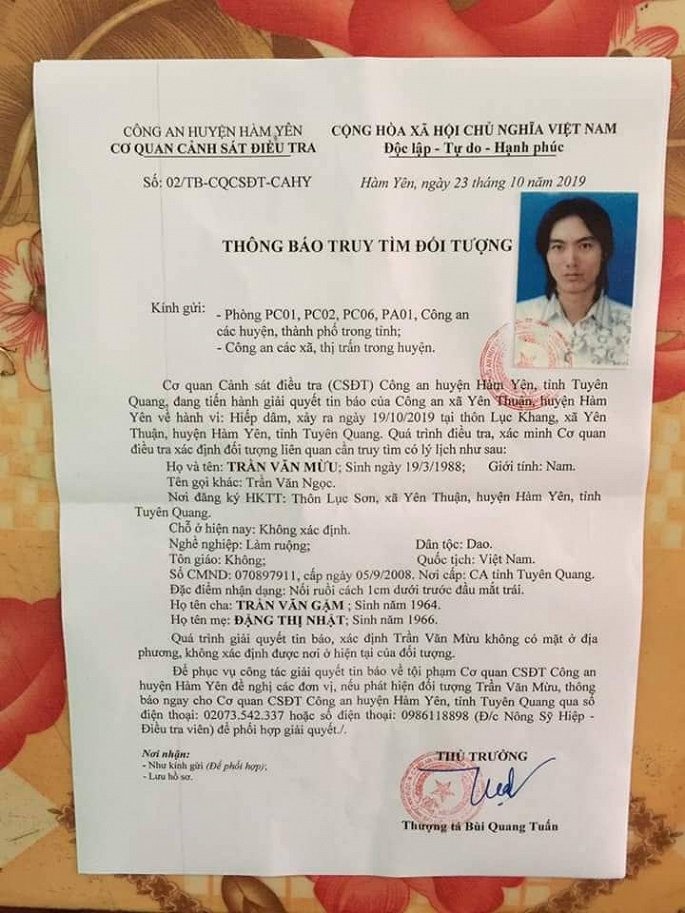 CÔNG AN HUYỆN HÀM YÊN
CƠ QUAN CẢNH SÁT ĐIỀU TRA
CỘNG HÒA XÃ HỘI CHỦ NGHĨA VIỆT NAM
Độc lập - Tự do - Hạnh phúc
Số: 02/TB-CQCSĐT-CAHY
Hàm Yên, ngày 23 tháng 10 năm 2019
THÔNG BÁO TRUY TÌM ĐỐI TƯỢNG
Kính gửi:
- Phòng PC01, PC02, PC06, PA01, Công an
các huyện, thành phố trong tỉnh;
- Công an các xã, thị trấn trong huyện.
Cơ quan Cảnh sát điều tra (CSĐT) Công an huyện Hàm Yên, tỉnh Tuyên
Quang, đang tiến hành giải quyết tin báo của Công an xã Yên Thuận, huyện Hàm
Yên về hành vi: Hiếp dâm, xảy ra ngày 19/10/2019 tại thôn Lục Khang, xã Yên
Thuận, huyện Hàm Yên, tỉnh Tuyên Quang. Quá trình điều tra, xác minh Cơ quan
điều tra xác định đối tượng liên quan cần truy tìm có lý lịch như sau:
Họ và tên: TRẦN VĂN MỪU; Sinh ngày 19/3/1988; Giới tính: Nam.
Tên gọi khác: Trần Văn Ngọc.
Nơi đăng ký HKTT: Thôn Lục Sơn, xã Yên Thuận, huyện Hàm Yên, tỉnh
Tuyên Quang.
Chỗ ở hiện nay: Không xác định.
Nghề nghiệp: Làm ruộng; Dân tộc: Dao.
Tôn giáo: Không; Quốc tịch: Việt Nam.
Số CMND: 070897911, cấp ngày 05/9/2008. Nơi cấp: CA tỉnh Tuyên Quang.
Đặc điểm nhận dạng: Nối ruồi cách 1cm dưới trước đầu mắt trái.
Họ tên cha: TRẦN VĂN GẶM ; Sinh năm 1964.
Họ tên mẹ: ĐẶNG THỊ NHẬT; Sinh năm 1966.
Quá trình giải quyết tin báo, xác định Trần Văn Mừu không có mặt ở địa
phương, không xác định được nơi ở hiện tại của đối tượng.
Để phục vụ công tác giải quyết tin báo về tội phạm Cơ quan CSĐT Công an
huyện Hàm Yên đề nghị các đơn vị, nếu phát hiện đối tượng Trần Văn Mừu, thông
báo ngay cho Cơ quan CSĐT Công an huyện Hàm Yên, tỉnh Tuyên Quang qua số
điện thoại: 02073.542.337 hoặc số điện thoại: 0986118898 (Đ/c Nông Sỹ Hiệp -
Điều tra viên) để phối hợp giải quyết./.
Nơi nhận:
- Như kính gửi (Để phối hợp);
- Lưu hồ sơ.
THỦ TRƯỞNG
Thượng tá Bùi Quang Tuấn